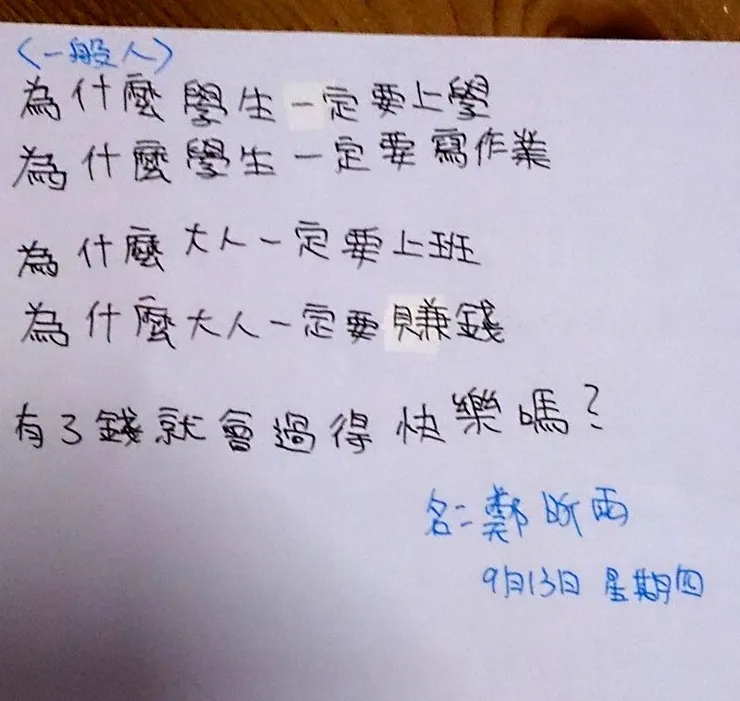 〈一般人〉
為什麼學生一定要上學
為什麼學生一定要寫作業
為什麼大人一定要上班
為什麼大人一定要賺錢
有了錢就會過得快樂嗎？
名：鄭昕雨
9月13日 星期四